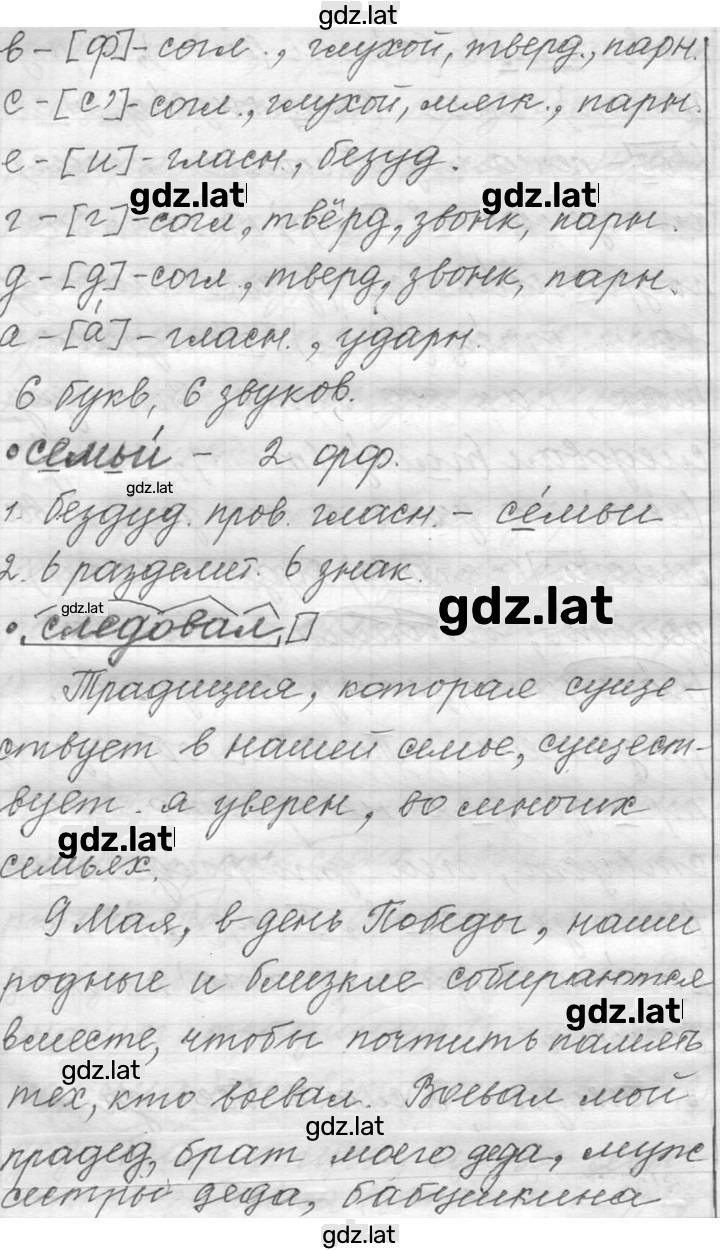 gdz.lat
в - [ф] - согл., глухой, тверд., парн.
с - [с'] - согл., глухой, мягк., парн.
е - [и] - гласн., безуд.
gdz.lat gdz.lat
г - [г] - согл, твёрд, звонк, парн.
д - [д] - согл., тверд, звонк, парн.
а - [а́] - гласн., ударн.
6 букв, 6 звуков.
• семьи́ - 2 орф.
gdz.lat
1. бездуд. пров. гласн. - се́мьи
2. ь разделит. ь знак.
gdz.lat gdz.lat
• следовал
Традиция, которая суще-
ствует в нашей семье, сущест-
вует. я уверен, во многих
gdz.lat
семьях.
9 Мая, в день Победы, наши
родные и близкие собираются
gdz.lat
вместе, чтобы почтить память
gdz.lat
тех, кто воевал. Воевал мой
gdz.lat
прадед, брат моего деда, муж
сестры деда, бабушкина
gdz.lat